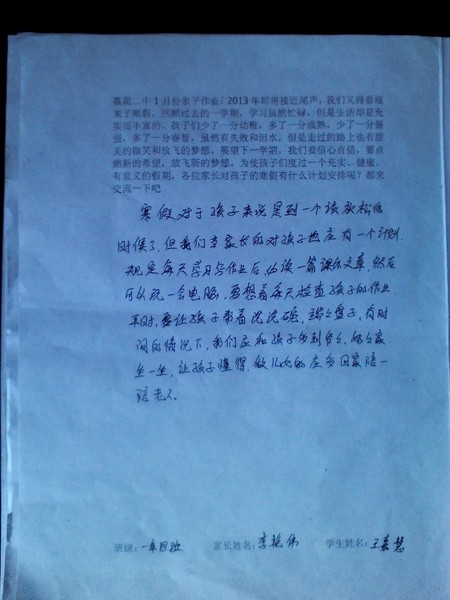 嘉荫二中1月份亲子作业：2013年即将接近尾声，我们又将要迎
来了寒假。回顾过去的一学期，学习虽然忙碌，但是生活却是充
实而丰富的，孩子们少了一分幼稚，多了一分成熟，少了一分倔
强，多了一分睿智，虽然有失败和泪水，但是走过的路上也有甜
美的微笑和放飞的梦想。展望下一学期，我们要信心百倍，要点
燃新的希望，放飞新的梦想。为使孩子们度过一个充实、健康、
有意义的假期，各位家长对孩子的寒假有什么计划安排呢？都来
交流一下吧
寒假对于孩子来说是到一个该放松的
时候了，但我们当家长的对孩子应有一个计划
规定每天学习写作业后，必读一篇课外文章，然后
可以玩一会电脑，要想着每天检查孩子的作业
平时，要让孩子帮着洗洗碗，端端盘子，有时
间的情况下，我们应和孩子多到
坐一坐，让孩子懂得，做儿女的应多回家陪一
陪老人。
班级：一年四班 家长姓名：李艳伟 学生姓名：王慧